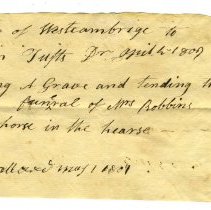 of Westcambrige to
Tufts Dr April 4 1807
A Grave and tending the
funeral of Mrs Robbins
horse in the hearse —
May 1 1807